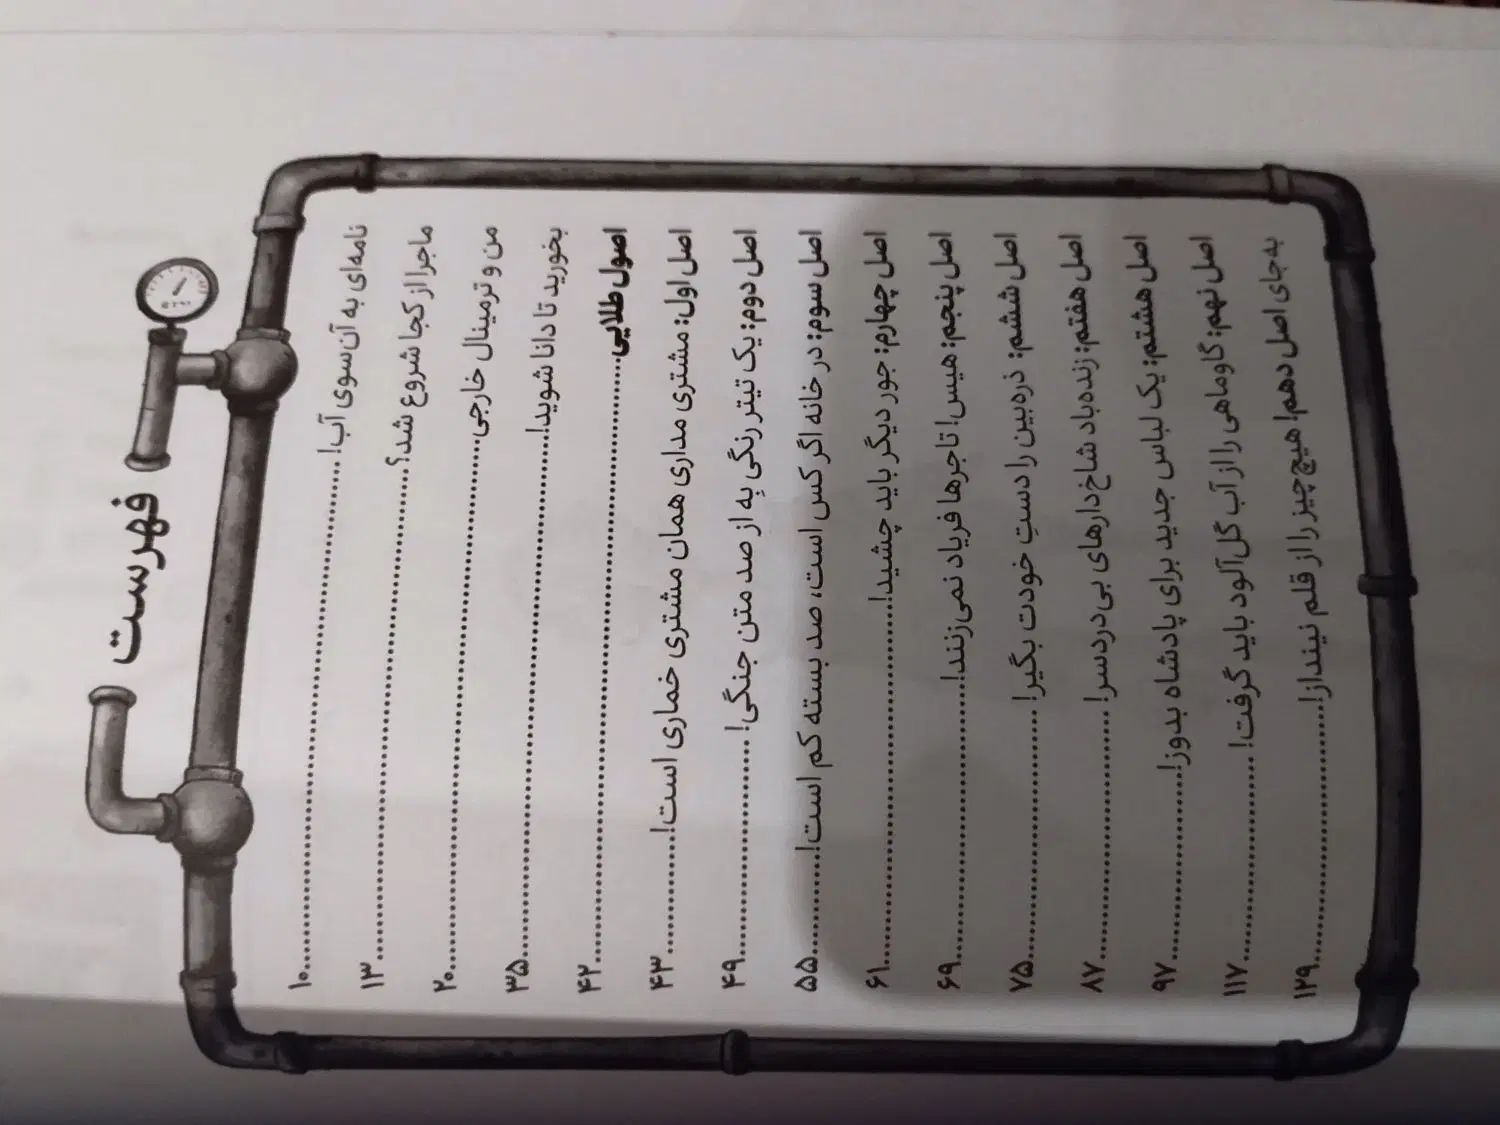 فهرست
نامه‌ای به آن سوی آب! ........ ۱۰
ماجرا از کجا شروع شد؟ ........ ۱۳
من و ترمینال خارجی ........ ۲۰
بخورید تا دانا شوید! ........ ۳۵
اصول طلایی ........ ۴۲
اصل اول: مشتری مداری همان مشتری خماری است! ........ ۴۳
اصل دوم: یک تیتر رنگی بِه از صد متن جنگی! ........ ۴۹
اصل سوم: در خانه اگر کس است، صد بسته کم است! ........ ۵۵
اصل چهارم: جور دیگر باید چشید! ........ ۶۱
اصل پنجم: هیس! تاجرها فریاد نمی‌زنند! ........ ۶۹
اصل ششم: ذره‌بین را دستِ خودت بگیر! ........ ۷۵
اصل هفتم: زنده‌باد شاخ‌دارهای بی‌دردسر! ........ ۸۷
اصل هشتم: یک لباس جدید برای پادشاه بدوز! ........ ۹۷
اصل نهم: گاوماهی را از آب گل‌آلود باید گرفت! ........ ۱۱۷
به جای اصل دهم! هیچ چیز را از قلم نینداز! ........ ۱۲۹